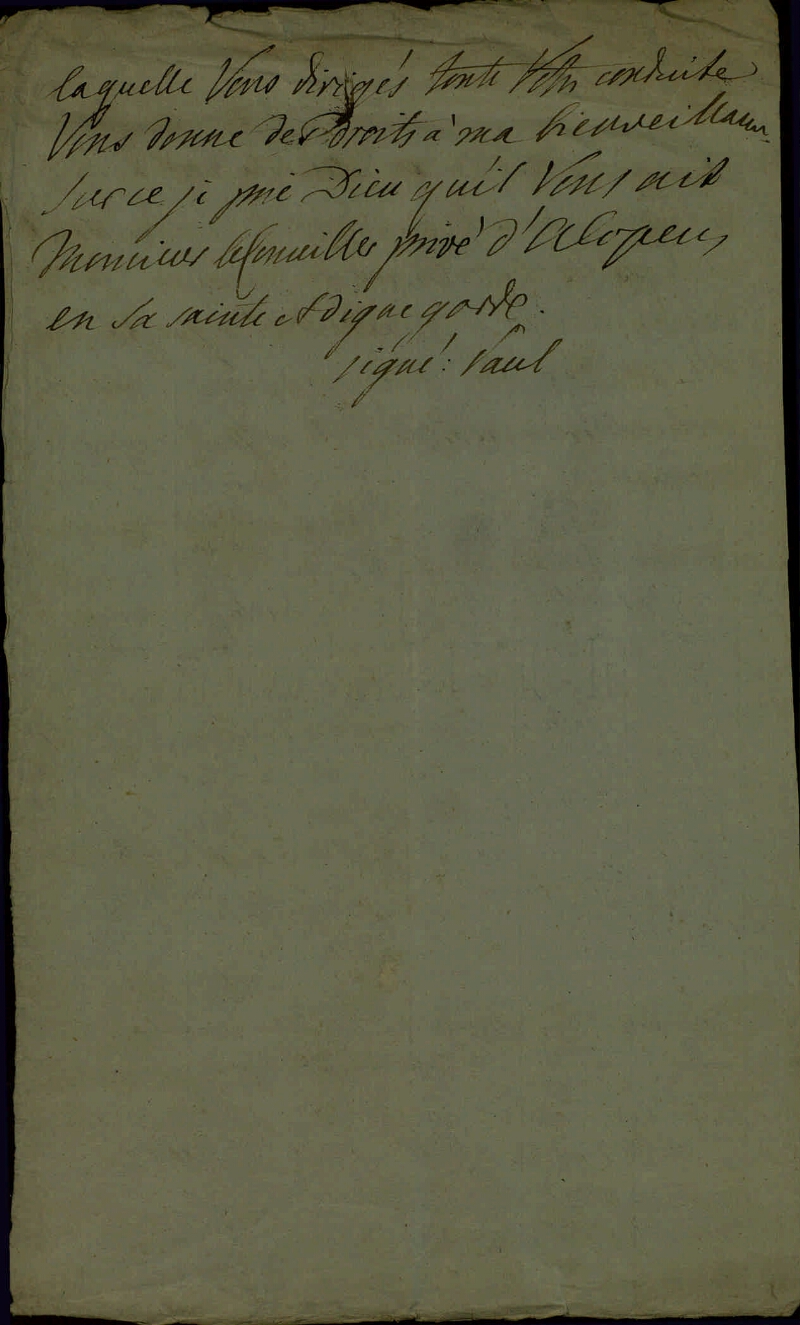 laquelle Vous dirigés toute Votre conduite
Vous donne des droits à ma bienveillance.
Sur ce je prie Dieu qu'il Vous ait
Monsieur le Conseiller privé d'Alopeus,
en sa sainte et digne garde.
signé: Paul